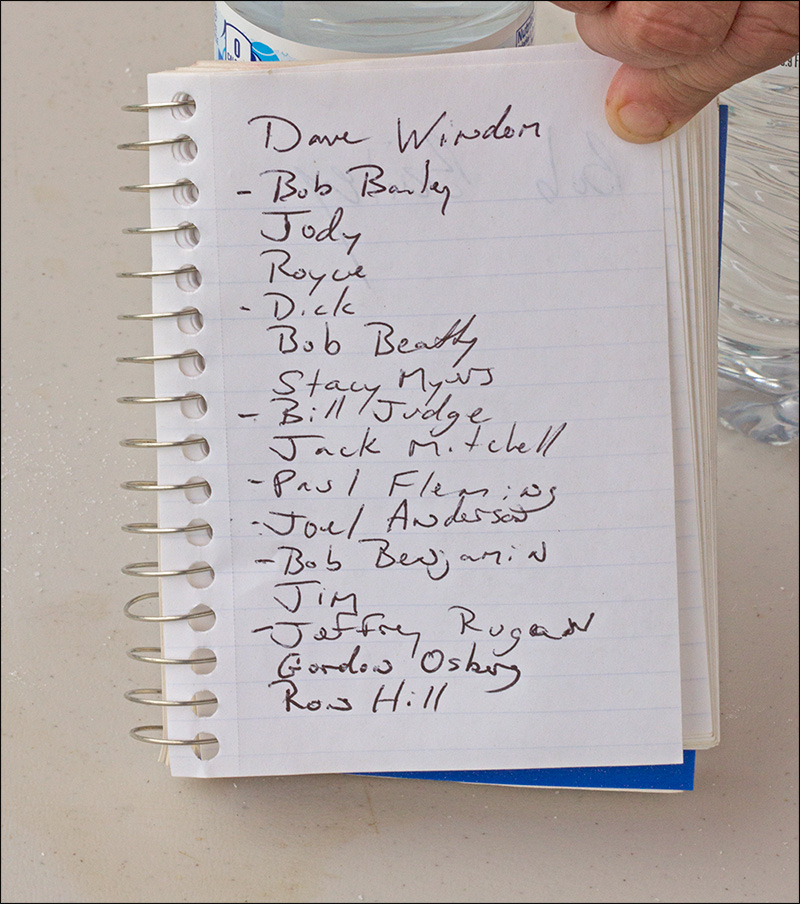 Dave Windom
- Bob Bailey
Jody
Royce
- Dick
Bob Beatty
Stacy Myers
- Bill Judge
Jack Mitchell
- Paul Fleming
- Joel Anderson
- Bob Benjamin
Jim
- Jeffrey Rugen
Gordon Osberg
Ron Hill